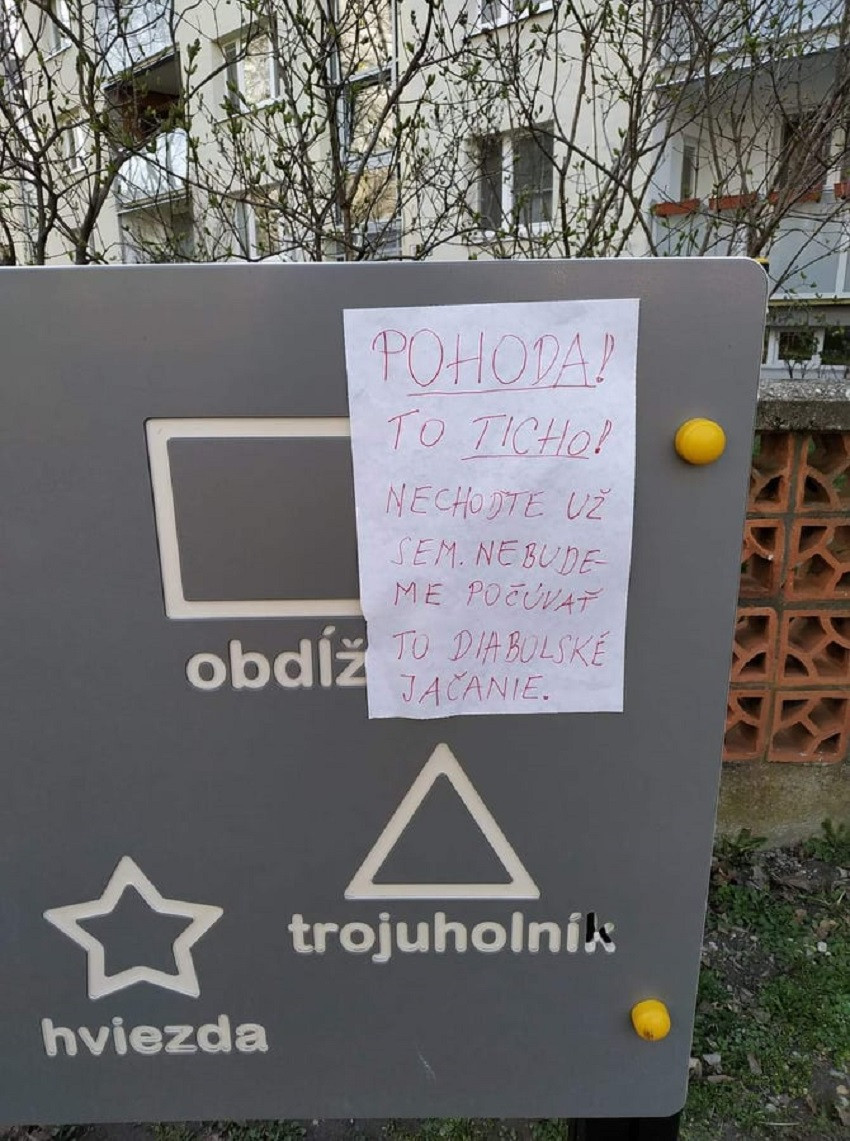 POHODA!
TO TICHO!
NECHOĎTE UŽ
SEM. NEBUDE-
ME POČÚVAŤ
TO DIABOLSKÉ
JAČANIE.
obdĺž
trojuholník
hviezda